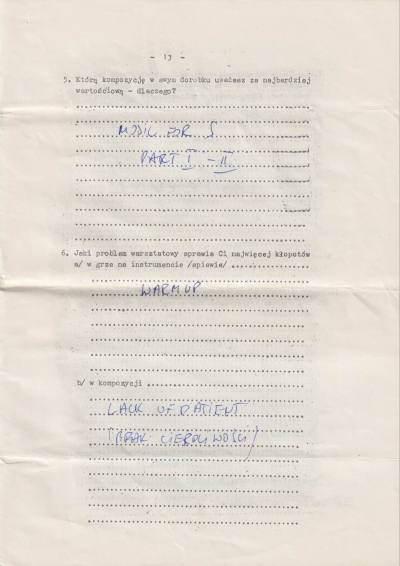 - 13 -
5. Którą kompozycję w swym dorobku uważasz za najbardziej
wartościową - dlaczego?
MUSIC FOR 5
PART I - II
6. Jaki problem warsztatowy sprawia Ci najwięcej kłopotów
a/ w grze na instrumencie /śpiewie/
WARM UP
b/ w kompozycji
LACK OF PATIENT
(BRAK CIERPLIWOŚCI)